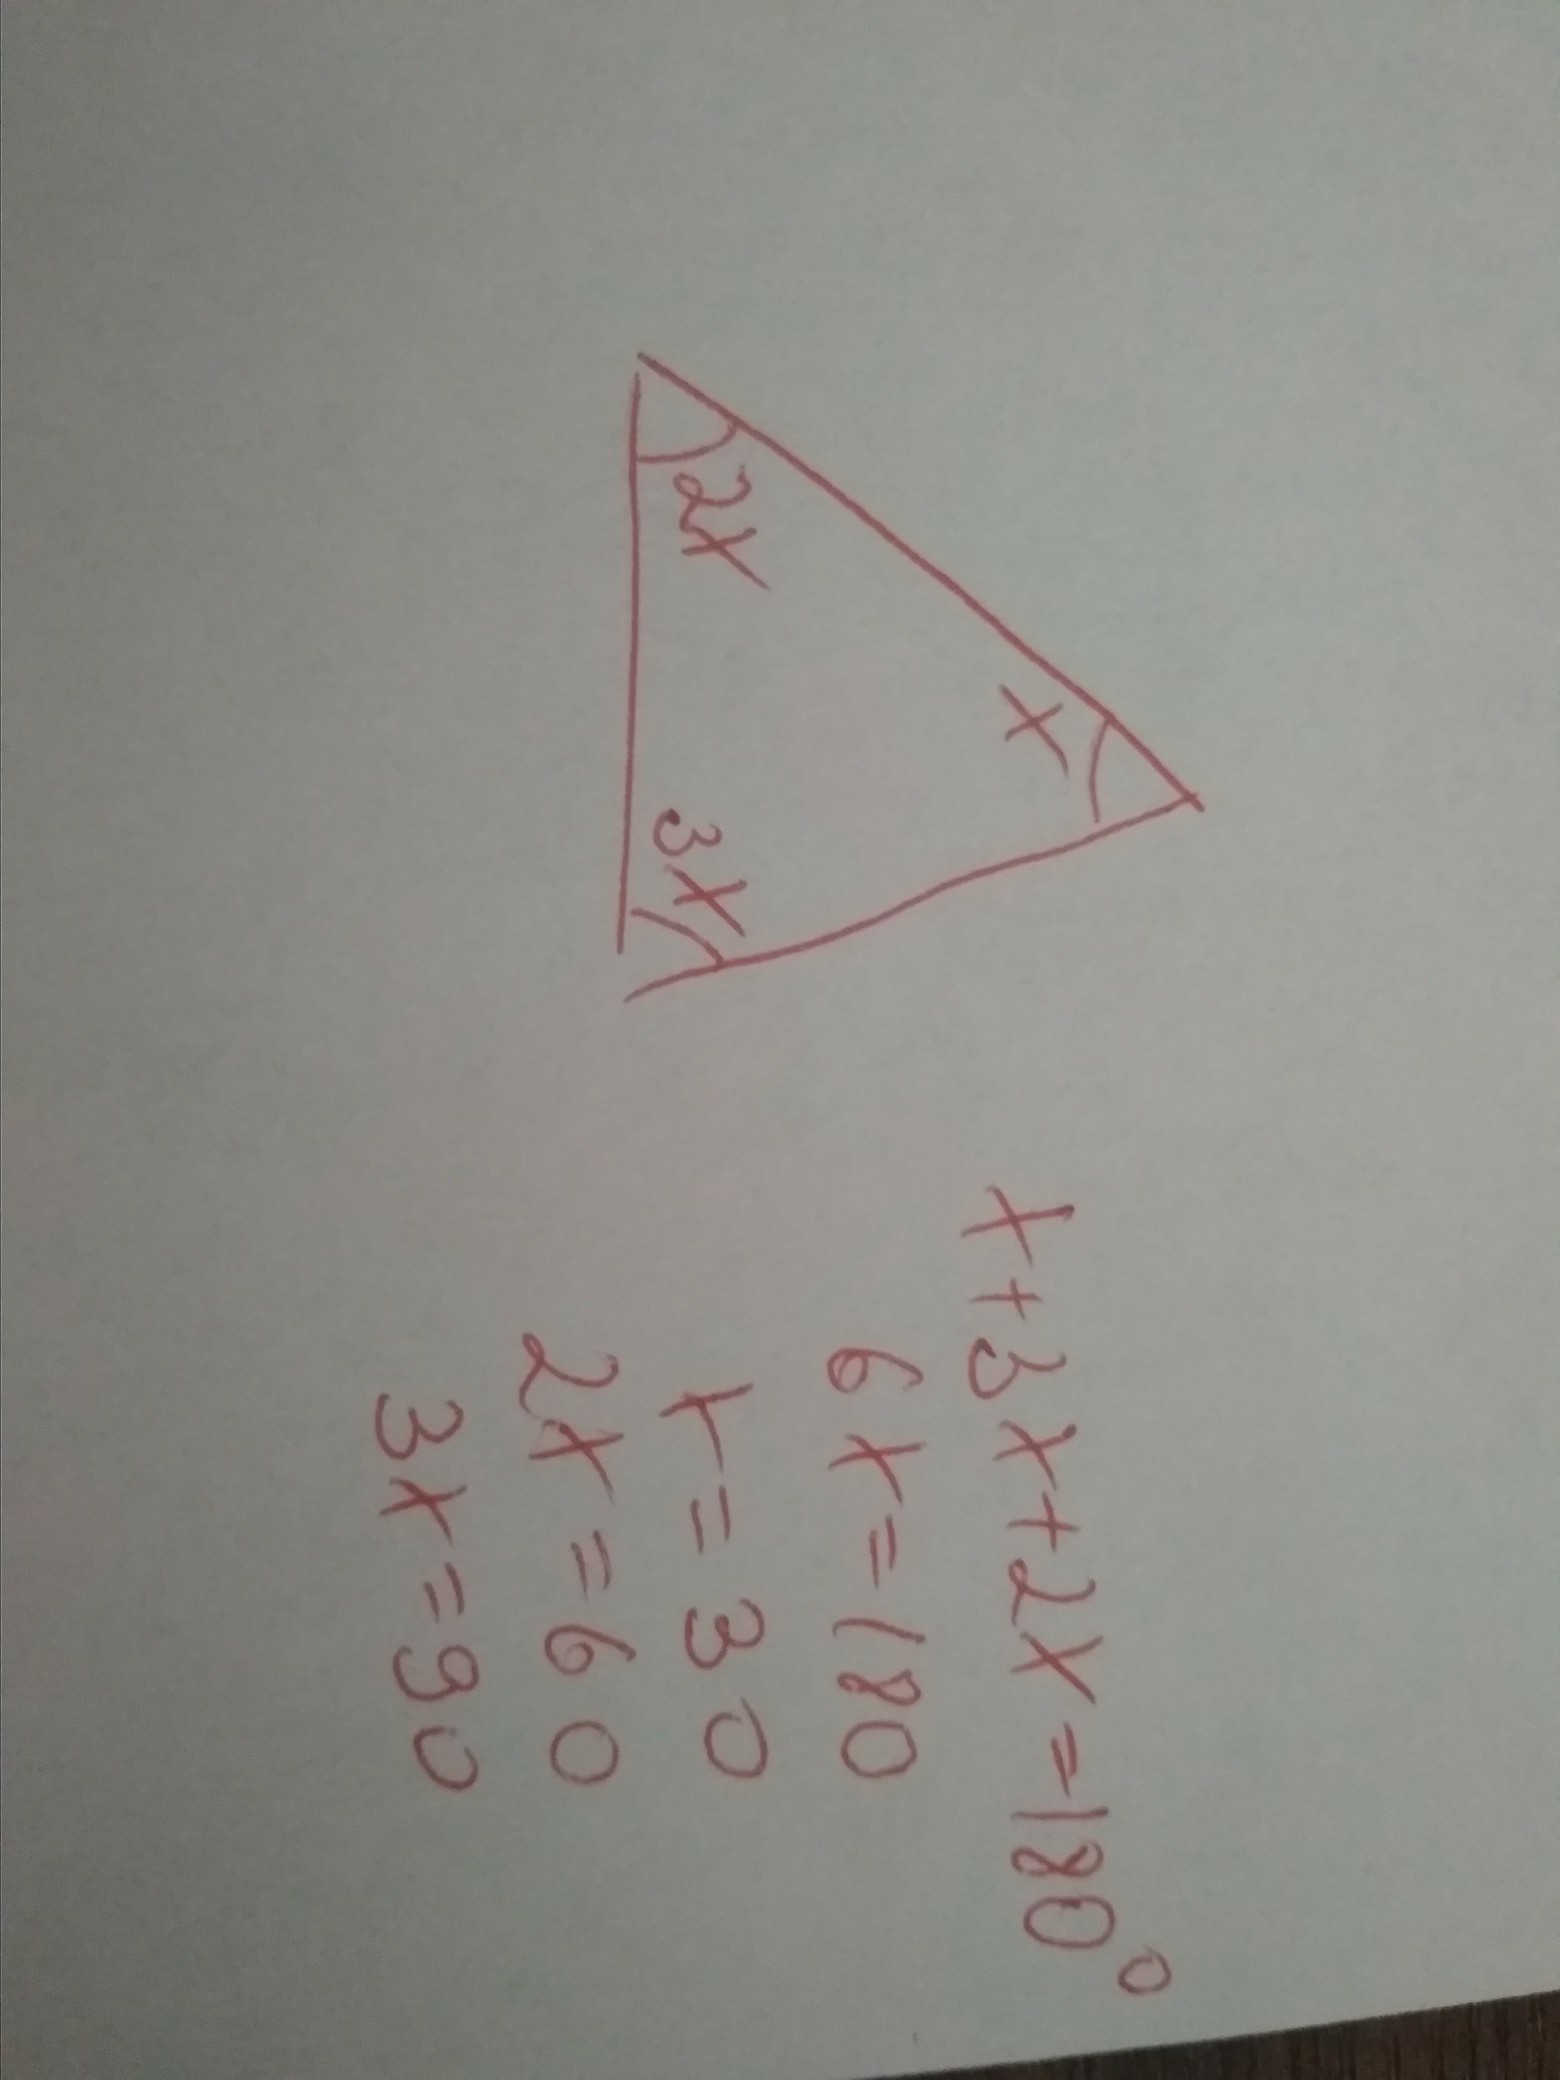 x
2x
3x
x+3x+2x=180°
6x=180
x=30
2x=60
3x=90